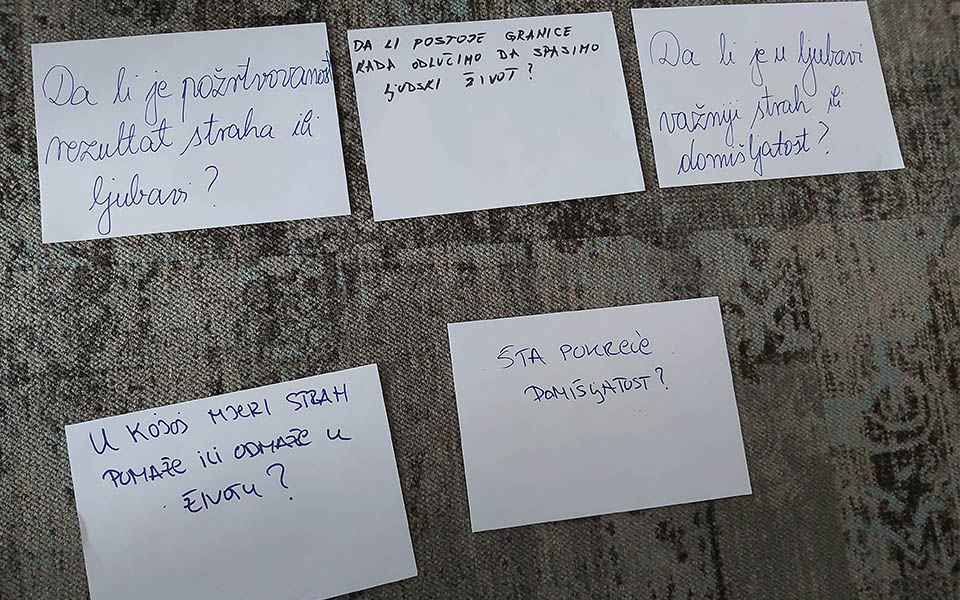 Da li je požrtvovanost
rezultat straha ili
ljubavi?
DA LI POSTOJE GRANICE
KADA ODLUČIMO DA SPASIMO
LJUDSKI ŽIVOT?
Da li je u ljubavi
važniji strah ili
domišljatost?
U KOJOJ MJERI STRAH
POMAŽE ILI ODMAŽE U
ŽIVOTU?
ŠTA POKREĆE
DOMIŠLJATOST?